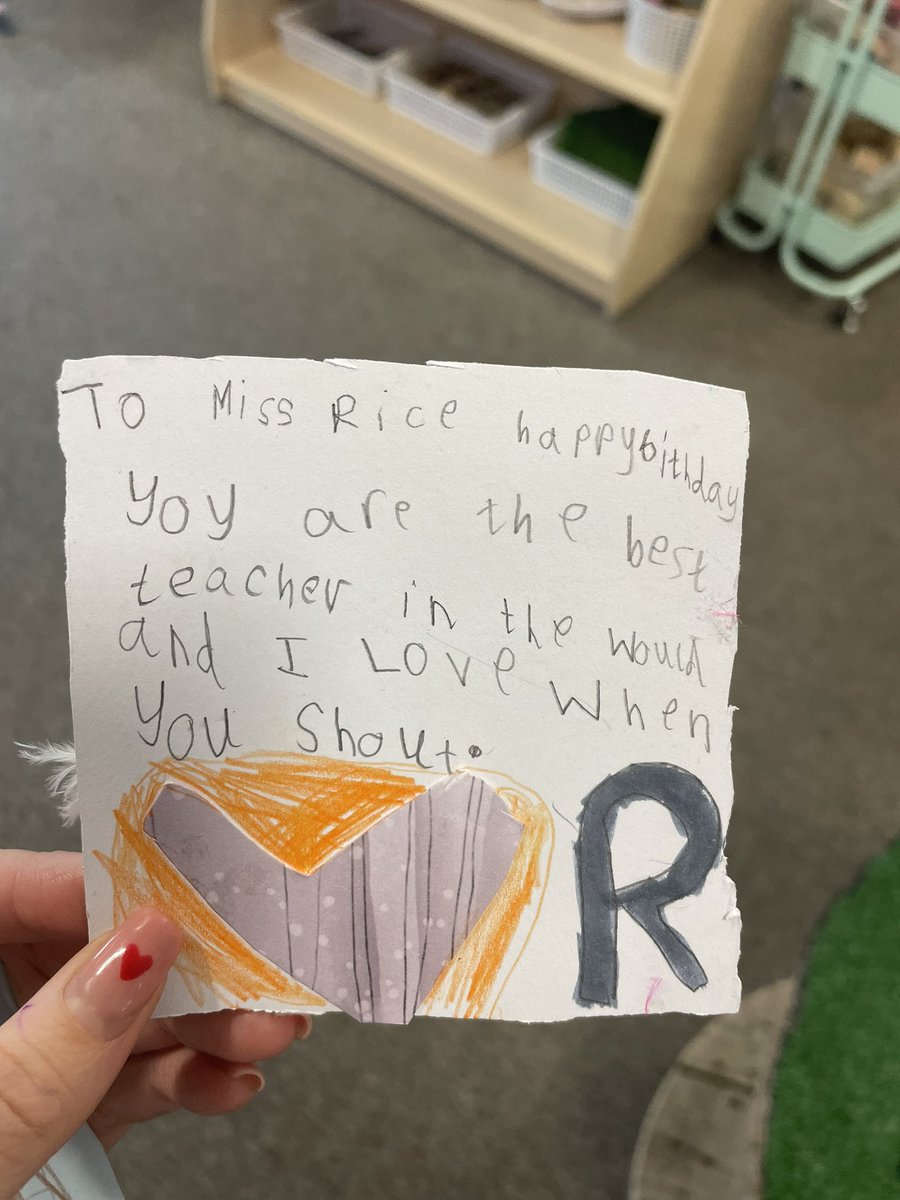 To Miss Rice happy bithday
Yoy are the best
teacher in the would
and I Love when
you shout.
R